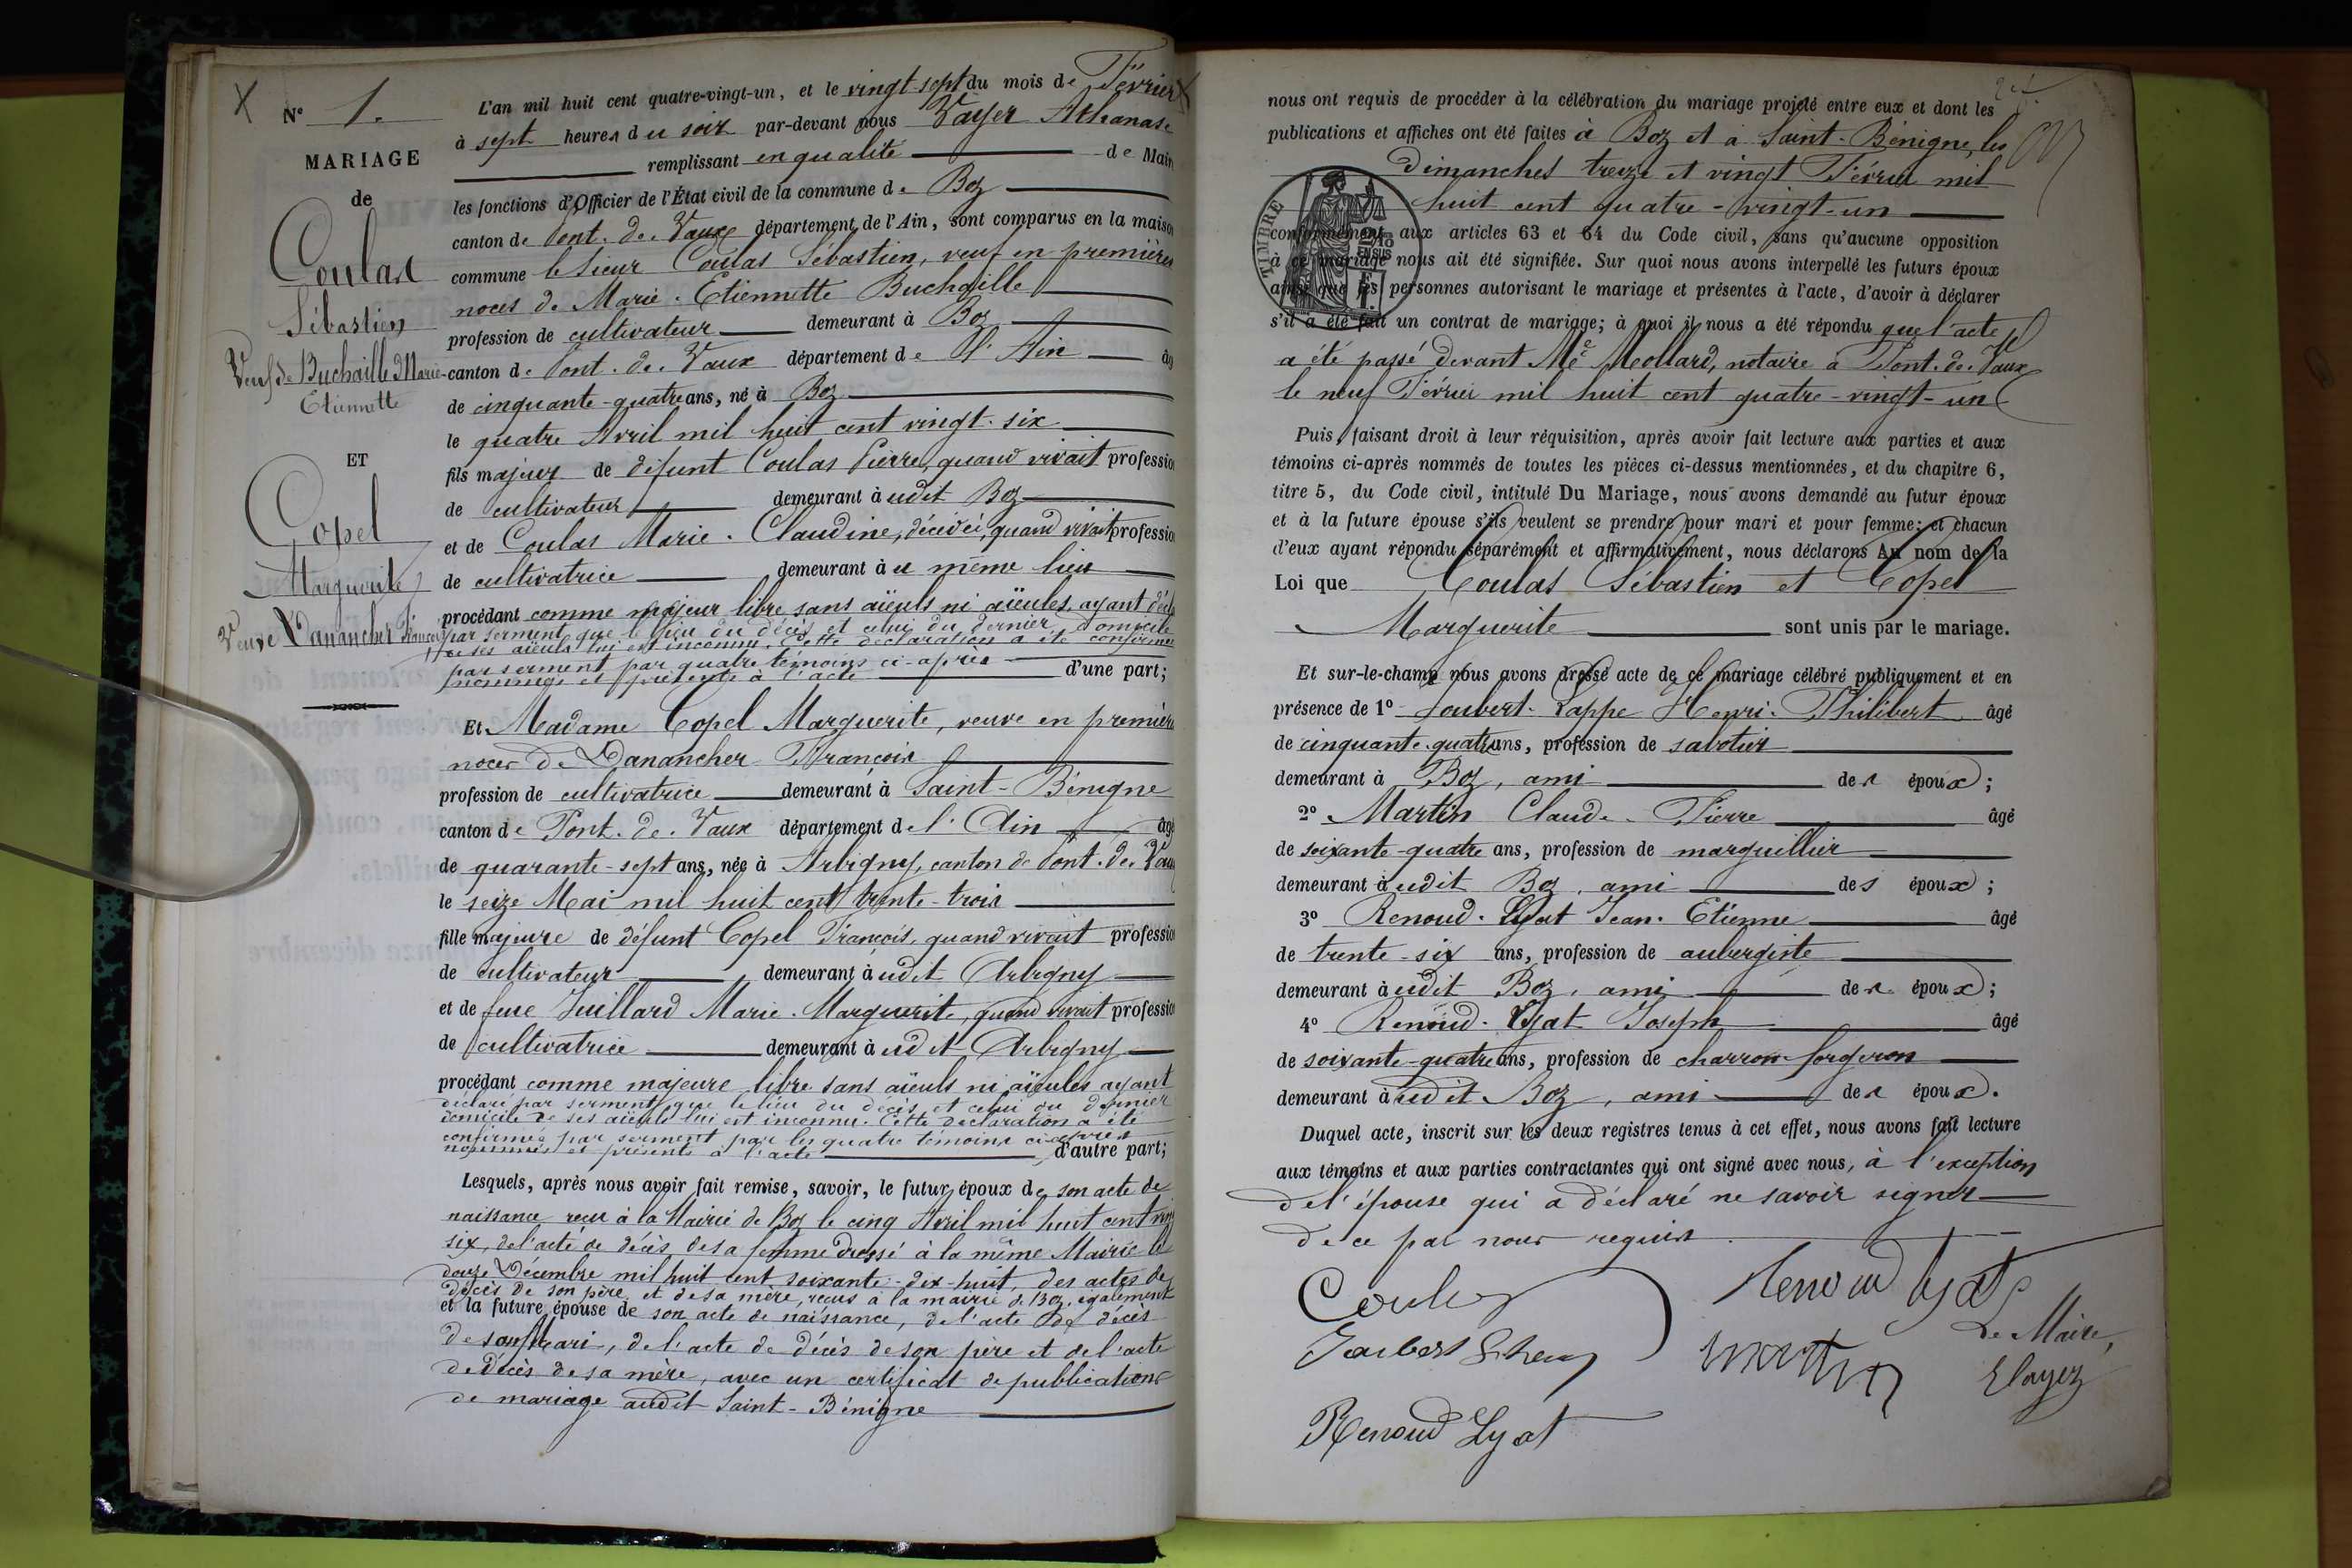 N° 1.
MARIAGE
de
Coulas
Sébastien
Veuf de Buchaille Marie-
Etiennette
ET
Copel
Marguerite
Veuve Danancher François
L'an mil huit cent quatre-vingt-un, et le vingt-sept du mois de Février
à sept heures du soir par-devant nous Vayer Athanase
remplissant en qualité de Maire
les fonctions d'Officier de l'État civil de la commune de Boz
canton de Pont-de-Vaux département de l'Ain, sont comparus en la maison
commune le Sieur Coulas Sébastien, veuf en premières
noces de Marie-Etiennette Buchaille
profession de cultivateur demeurant à Boz
canton de Pont-de-Vaux département de l'Ain âgé
de cinquante-quatre ans, né à Boz
le quatre Avril mil huit cent vingt-six
fils majeur de défunt Coulas Pierre, quand vivait profession
de cultivateur demeurant à udit Boz
et de Coulas Marie-Claudine, décédée, quand vivait profession
de cultivatrice demeurant à u même lieu
procédant comme majeur libre sans aïeuls ni aïeules, ayant déclaré
par serment que le lieu du décès et celui du dernier domicile
de ses aïeuls lui est inconnu. Cette déclaration a été confirmée
par serment par quatre témoins ci-après
nommés et présents à l'acte d'une part;
Et Madame Copel Marguerite, veuve en première
noces de Danancher François
profession de cultivatrice demeurant à Saint-Bénigne
canton de Pont-de-Vaux département de l'Ain âgé
de quarante-sept ans, née à Arbigny, canton de Pont-de-Vaux
le seize Mai mil huit cent trente-trois
fille majeure de défunt Copel François, quand vivait profession
de cultivateur demeurant à udit Arbigny
et de feue Juillard Marie-Marguerite, quand vivait profession
de cultivatrice demeurant à udit Arbigny
procédant comme majeure libre sans aïeuls ni aïeules ayant
déclaré par serment que le lieu du décès et celui du dernier
domicile de ses aïeuls lui est inconnu. Cette déclaration a été
confirmée par serment par les quatre témoins ci-après
nommés et présents à l'acte d'autre part;
Lesquels, après nous avoir fait remise, savoir, le futur époux de son acte de
naissance reçu à la Mairie de Boz le cinq Avril mil huit cent vingt
six, de l'acte de décès de sa femme dressé à la même Mairie le
douze Décembre mil huit cent soixante-dix-huit, des actes de
décès de son père et de sa mère, reçus à la mairie de Boz, également
et la future épouse de son acte de naissance, de l'acte de décès
de son Mari, de l'acte de décès de son père et de l'acte
de décès de sa mère, avec un certificat de publications
de mariage audit Saint-Bénigne
nous ont requis de procéder à la célébration du mariage projeté entre eux et dont les
publications et affiches ont été faites à Boz et à Saint-Bénigne, les
dimanches treize et vingt Février mil
huit cent quatre-vingt-un
TIMBRE
conformément aux articles 63 et 64 du Code civil, sans qu'aucune opposition
à ce mariage nous ait été signifiée. Sur quoi nous avons interpellé les futurs époux
ainsi que les personnes autorisant le mariage et présentes à l'acte, d'avoir à déclarer
s'il a été fait un contrat de mariage; à quoi il nous a été répondu que l'acte
a été passé devant Me Mollard, notaire à Pont-de-Vaux
le neuf Février mil huit cent quatre-vingt-un
Puis, faisant droit à leur réquisition, après avoir fait lecture aux parties et aux
témoins ci-après nommés de toutes les pièces ci-dessus mentionnées, et du chapitre 6,
titre 5, du Code civil, intitulé Du Mariage, nous avons demandé au futur époux
et à la future épouse s'ils veulent se prendre pour mari et pour femme; et chacun
d'eux ayant répondu séparément et affirmativement, nous déclarons Au nom de la
Loi que Coulas Sébastien et Copel
Marguerite sont unis par le mariage.
Et sur-le-champ nous avons dressé acte de ce mariage célébré publiquement et en
présence de 1° Joubert-Lappe Henri-Philibert âgé
de cinquante-quatre ans, profession de sabotier
demeurant à Boz, ami des époux;
2° Martin Claude-Pierre âgé
de soixante-quatre ans, profession de marguillier
demeurant à udit Boz, ami des époux;
3° Renoud-Lyat Jean-Etienne âgé
de trente-six ans, profession de aubergiste
demeurant à udit Boz, ami des époux;
4° Renoud-Lyat Joseph âgé
de soixante-quatre ans, profession de charron-forgeron
demeurant à udit Boz, ami des époux.
Duquel acte, inscrit sur les deux registres tenus à cet effet, nous avons fait lecture
aux témoins et aux parties contractantes qui ont signé avec nous, à l'exception
de l'épouse qui a déclaré ne savoir signer
de ce par nous requis
Coulas
Renoud Lyat
Le Maire,
Joubert
Martin
Vayer
Renoud Lyat